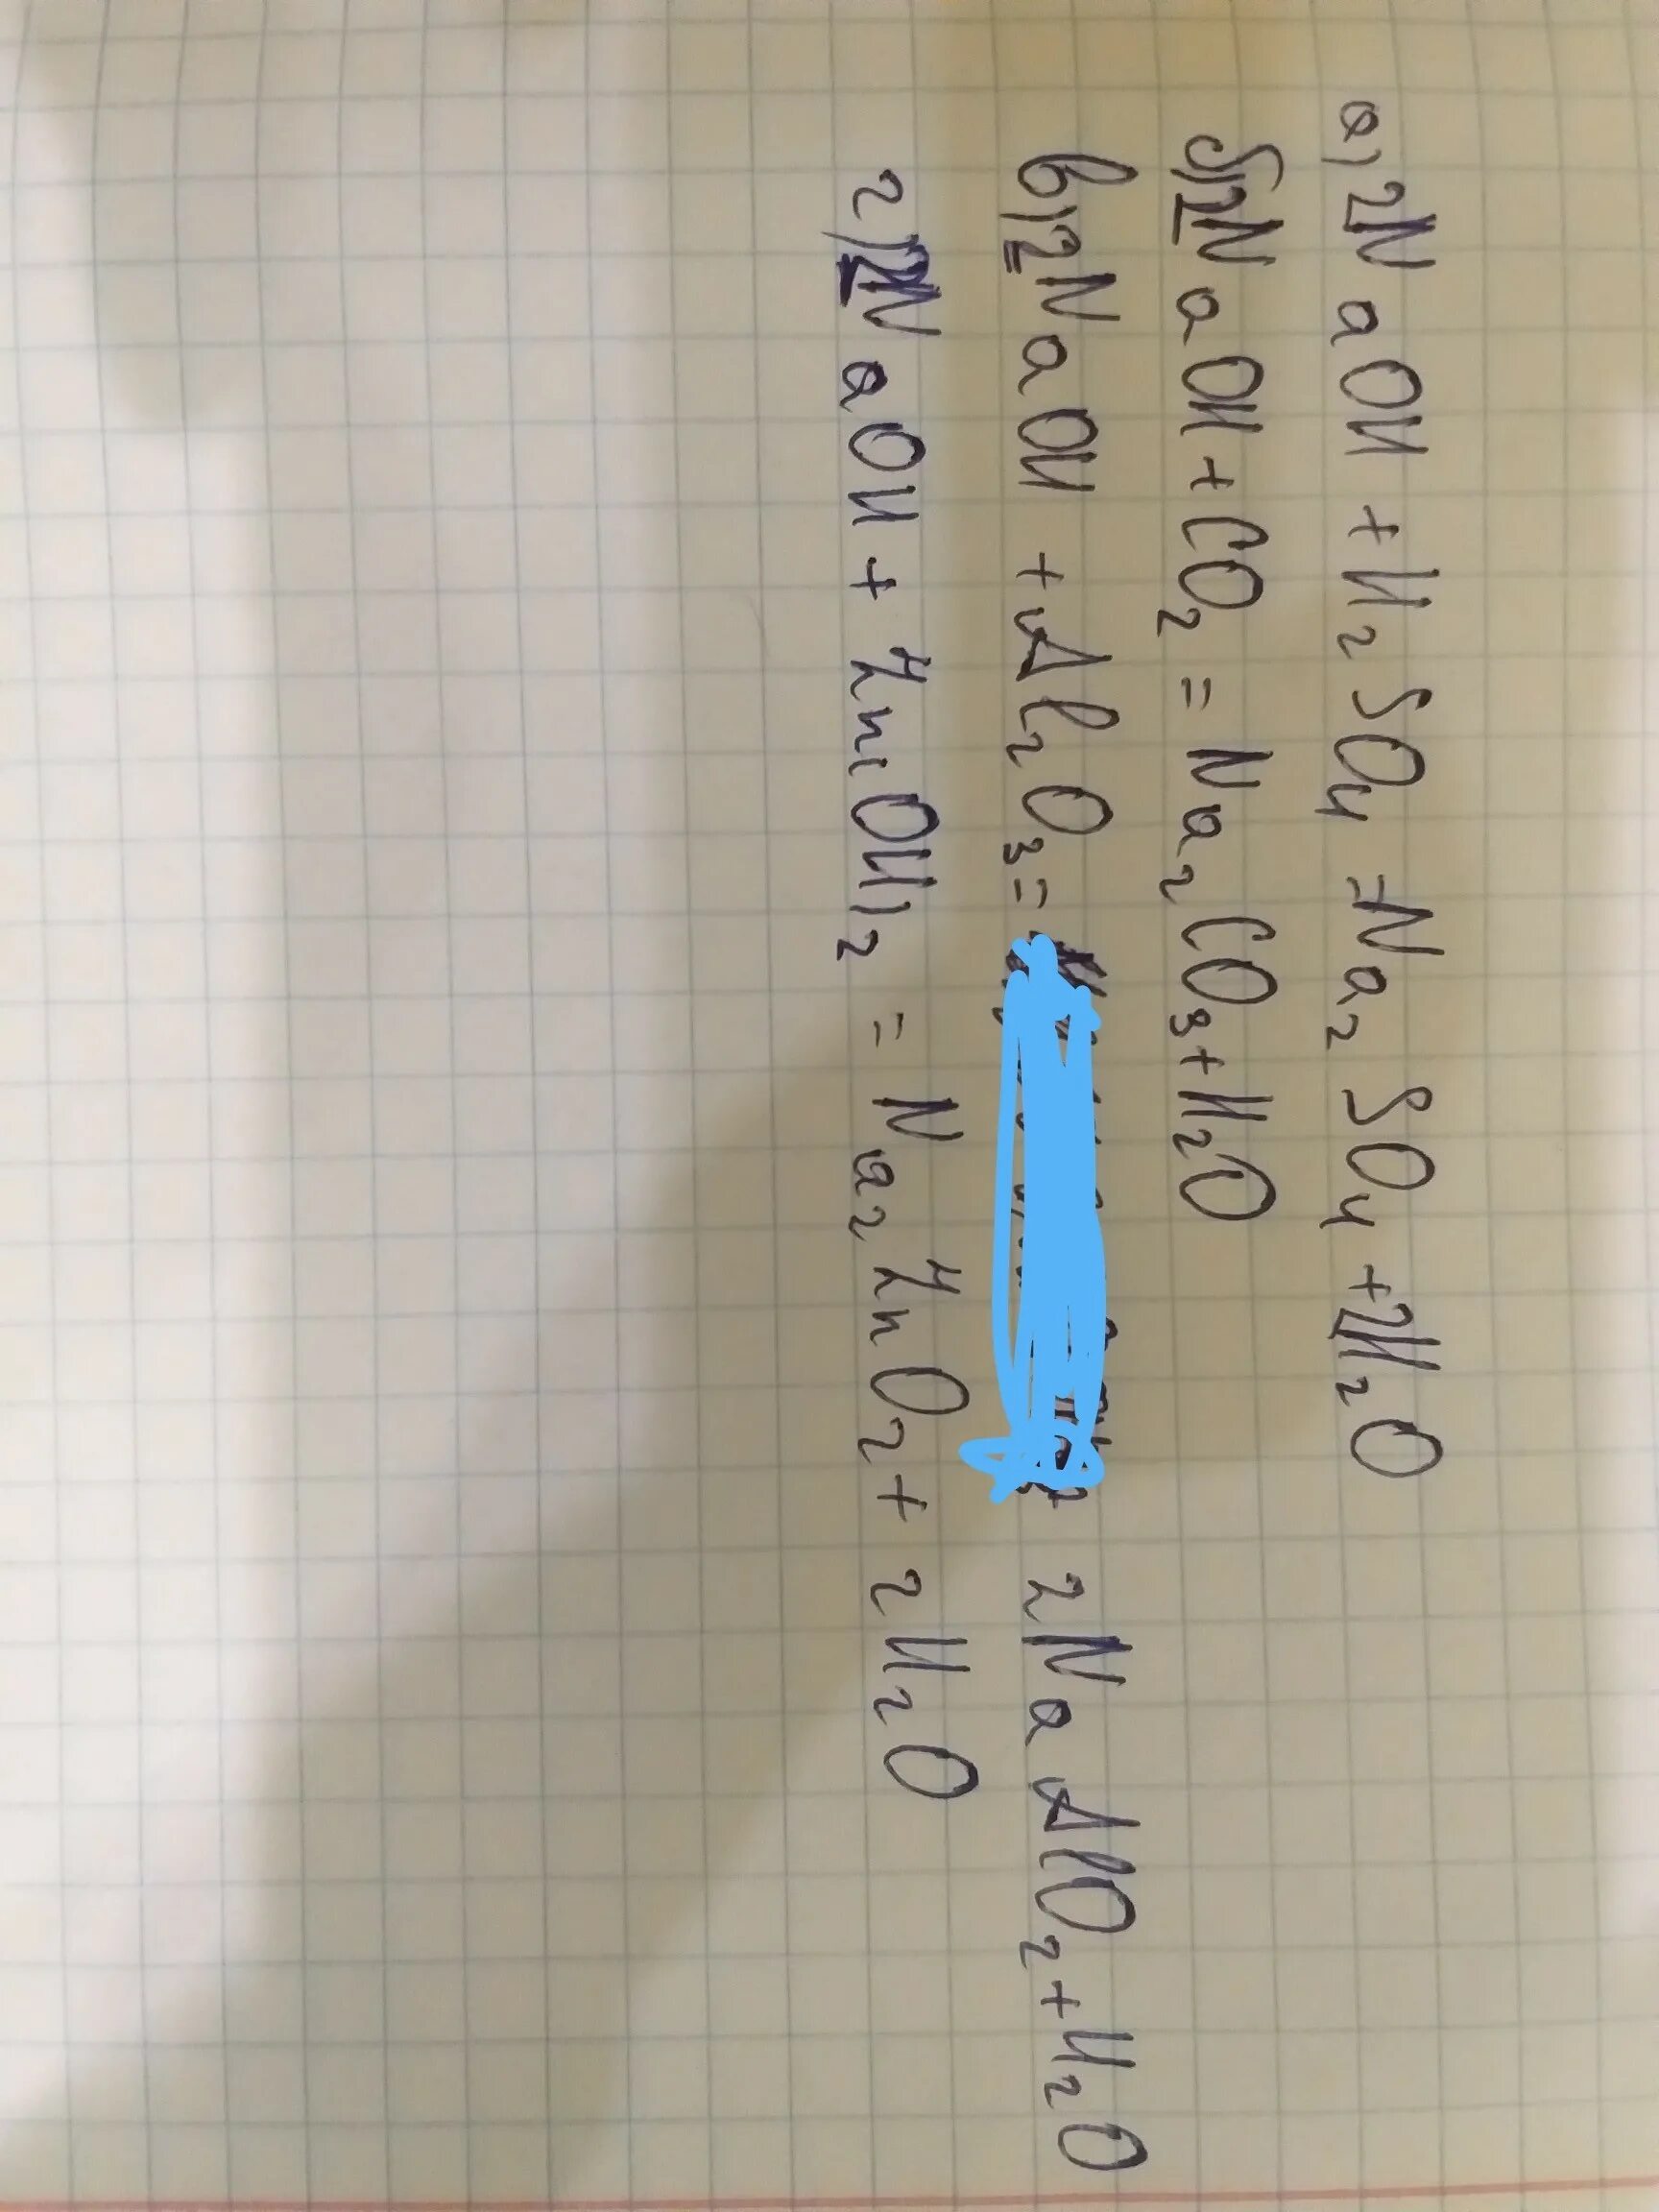 а) 2NaOH + H₂SO₄ = Na₂SO₄ + 2H₂O
б) 2NaOH + CO₂ = Na₂CO₃ + H₂O
в) 2NaOH + Al₂O₃ = 2NaAlO₂ + H₂O
г) 2NaOH + Zn(OH)₂ = Na₂ZnO₂ + 2H₂O